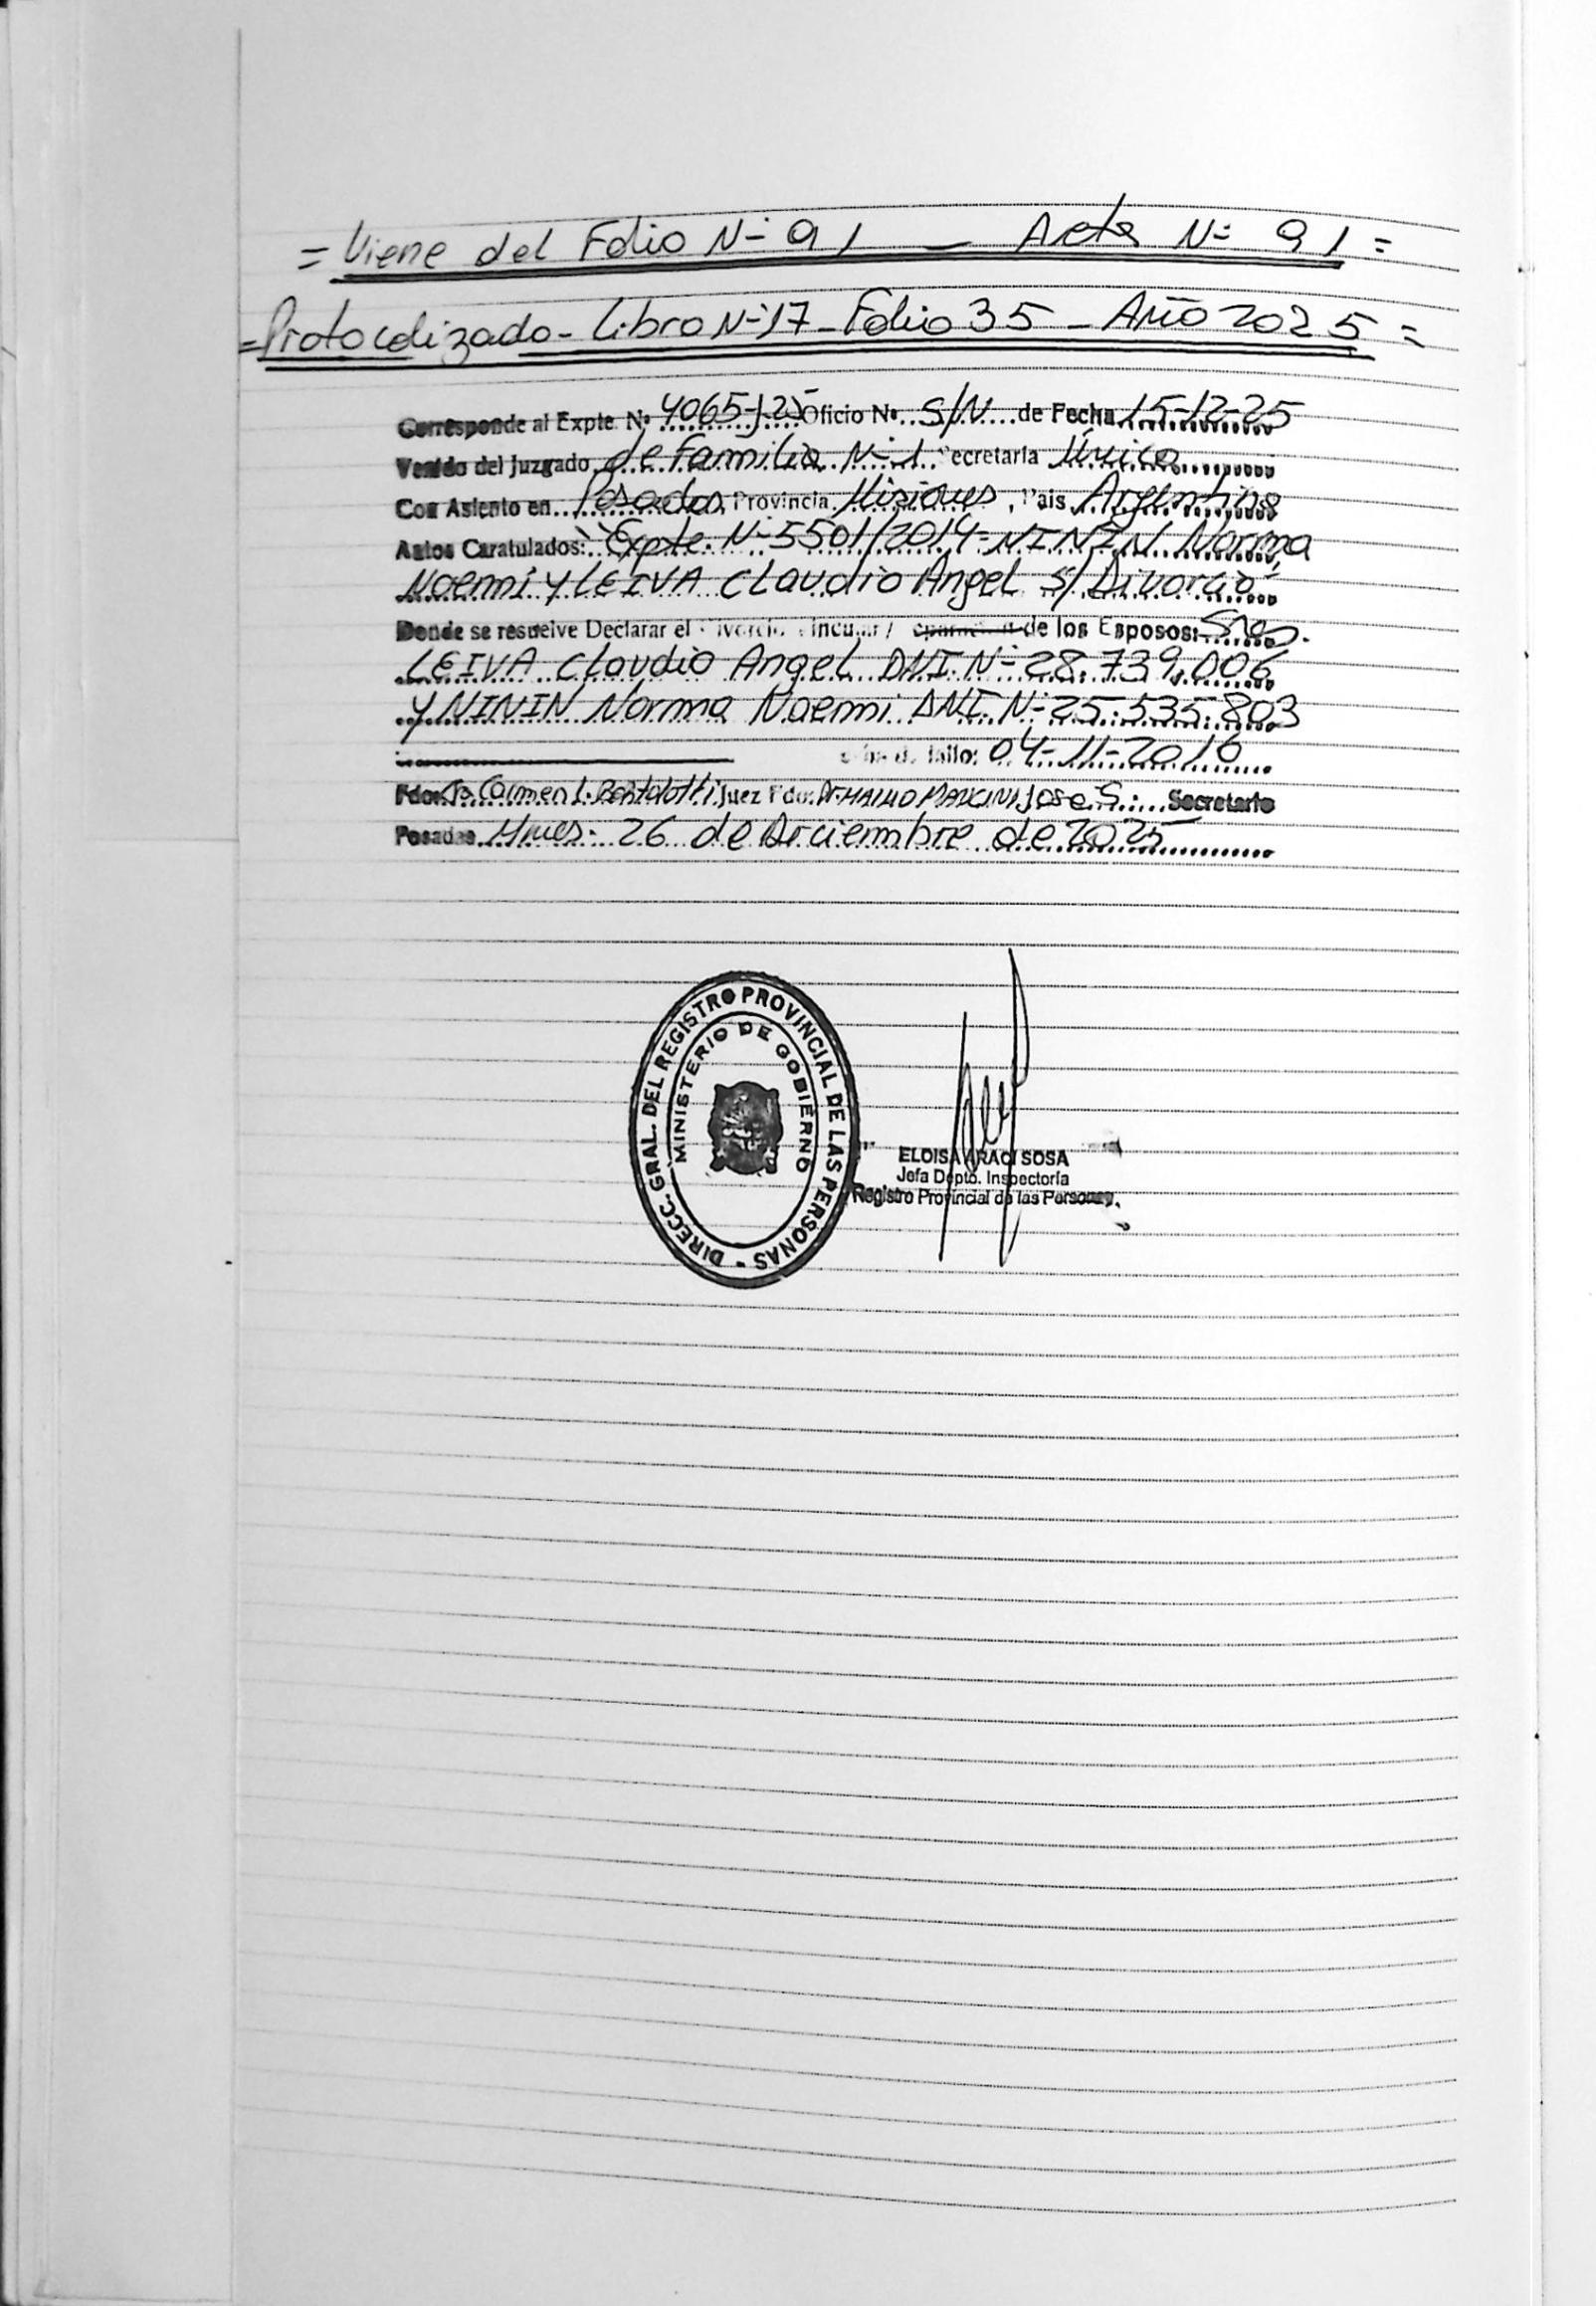 = Viene del Folio N° 91 — Acta N° 91 =
= Protocolizado - Libro N° 17 - Folio 35 - Año 2025 =
Corresponde al Expte. N° 4065-J-25 Oficio N° S/N de Fecha 15-12-25
Venido del Juzgado de Familia N° 1 Secretaria Única
Con Asiento en Posadas Provincia Misiones, Pais Argentina
Autos Caratulados: "Expte. N° 5501/2014 - NININ Norma
Noemi y LEIVA Claudio Angel S/ Divorcio"
Donde se resuelve Declarar el Divorcio Vincular / de los Esposos: Sres.
LEIVA Claudio Angel DNI. N° 28.739.006
y NININ Norma Noemi DNI. N° 25.535.803
fallo: 04-11-2016
Fdo: Carmen L. Juez Fdo: Dr. Jose S. Secretario
Posadas Mnes: 26 de Diciembre de 2025
DIRECC. GRAL. DEL REGISTRO PROVINCIAL DE LAS PERSONAS -
MINISTERIO DE GOBIERNO
ELOISA ARACI SOSA
Jefa Depto. Inspectoría
Registro Provincial de las Personas